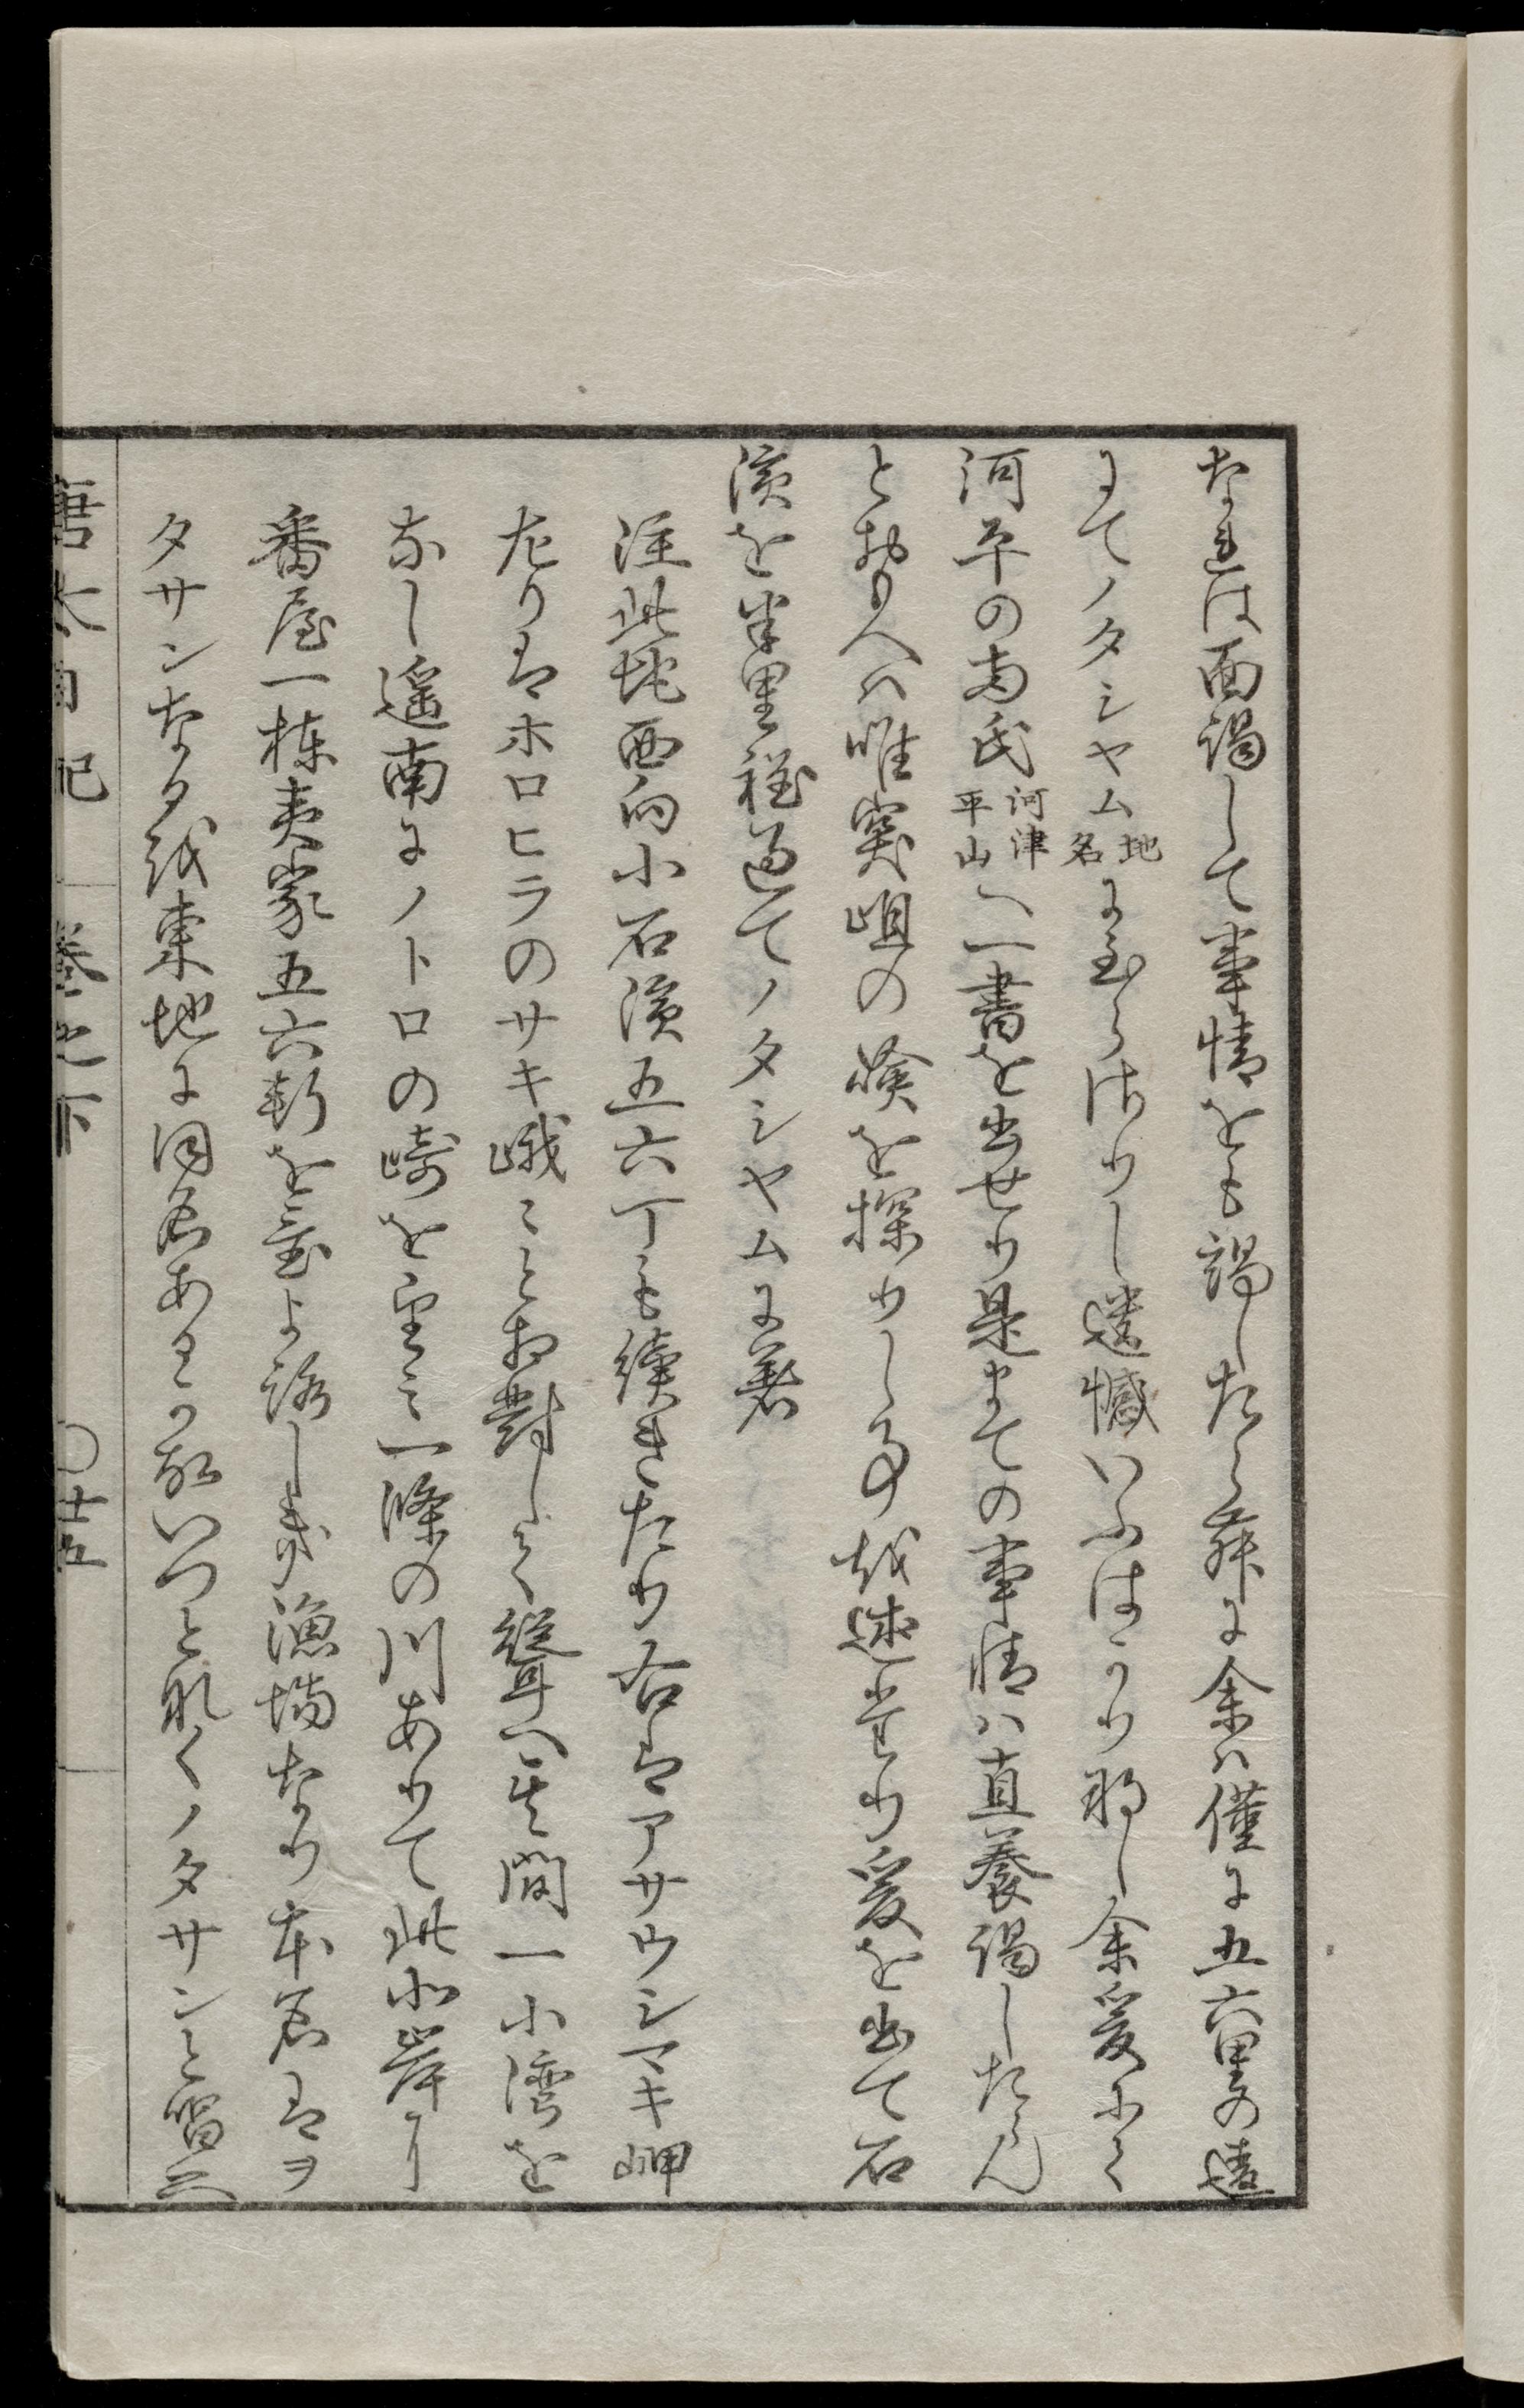 なれは面謁して事情をも謁したらん舜に余ハ僅に五六里の遠
にてノタシヤム地名に至らさりし遺憾いふはかり那し余爰にて
河平の両氏河津平山へ一書を出せり是まての事情ハ直養謁したらん
とおもへハ唯突岨の嶮を探りし事越述堂り爰を出て石
濱を半里程過てノタシヤムに着
注此地西向小石濱五六丁も續きたり右はアサウシマキ岬
左りはホロヒラのサキ峨〻と相對して聳へ其間一小湾を
なし遥南にノトロの崎を望ミ一條の川ありて此北岸に
番屋一棟夷家五六軒を置よ詠しき漁場なり本名はヲ
タサンなる越東地に同名ある故いつと那くノタサンと唱云
唐太日記　巻之下　〇十五